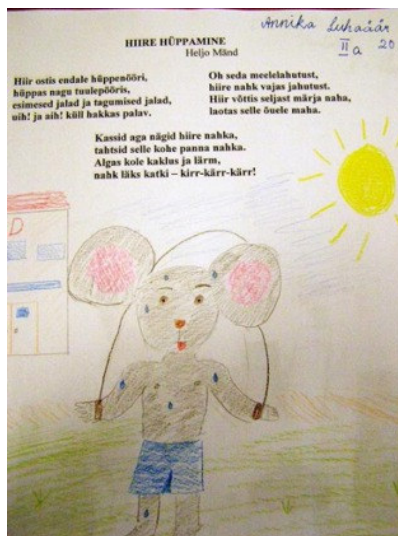 Annika Luhaäär
II a 20
HIIRE HÜPPAMINE
Heljo Mänd
Hiir ostis endale hüppenööri,
hüppas nagu tuulepööris,
esimesed jalad ja tagumised jalad,
uih! ja aih! küll hakkas palav.
Oh seda meelelahutust,
hiire nahk vajas jahutust.
Hiir võttis seljast märja naha,
laotas selle õuele maha.
Kassid aga nägid hiire nahka,
tahtsid selle kohe panna nahka.
Algas kole kaklus ja lärm,
nahk läks katki – kirr-kärr-kärr!
D